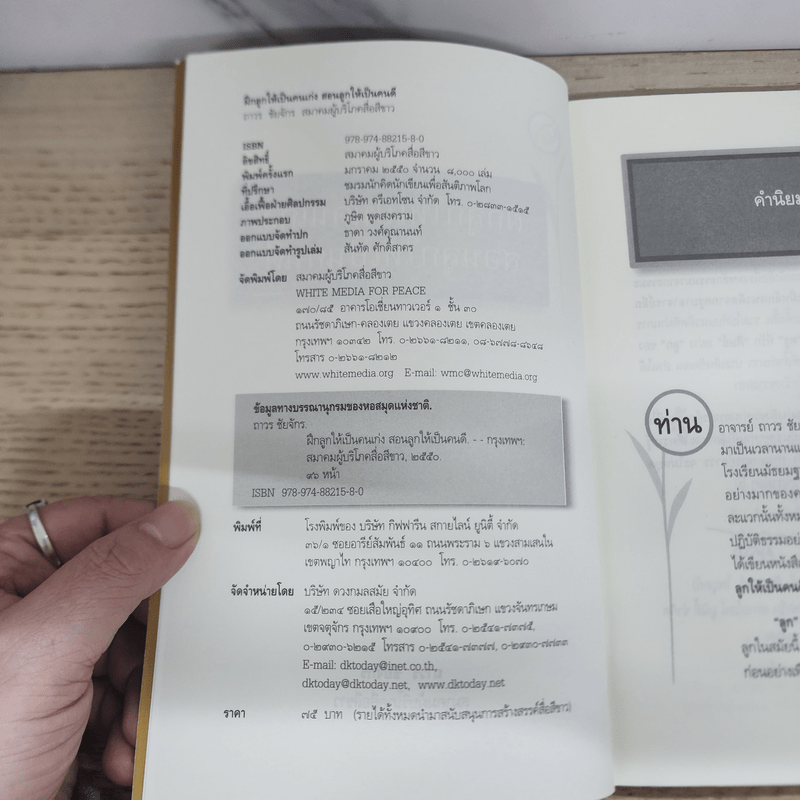 ฝึกลูกให้เป็นคนเก่ง สอนลูกให้เป็นคนดี
ถาวร ชัยจักร สมาคมผู้บริโภคสื่อสีขาว
ISBN 978-974-88215-8-0
ลิขสิทธิ์ สมาคมผู้บริโภคสื่อสีขาว
พิมพ์ครั้งแรก มกราคม ๒๕๕๐ จำนวน ๘,๐๐๐ เล่ม
ที่ปรึกษา ชมรมนักคิดนักเขียนเพื่อสันติภาพโลก
เอื้อเฟื้อฝ่ายศิลปกรรม บริษัท ครีเอทโซน จำกัด โทร. ๐-๒๘๓๓-๑๕๑๕
ภาพประกอบ ภูษิต พูดสงคราม
ออกแบบจัดทำปก ธาดา วงศ์คุณานนท์
ออกแบบจัดทำรูปเล่ม สันทัด ศักดิ์สาคร
จัดพิมพ์โดย สมาคมผู้บริโภคสื่อสีขาว
WHITE MEDIA FOR PEACE
๑๗๐/๘๕ อาคารโอเชี่ยนทาวเวอร์ ๑ ชั้น ๓๐
ถนนรัชดาภิเษก-คลองเตย แขวงคลองเตย เขตคลองเตย
กรุงเทพฯ ๑๐๓๔๒ โทร. ๐-๒๖๖๑-๘๒๑๑, ๐๘-๖๗๗๘-๘๖๔๘
โทรสาร ๐-๒๖๖๑-๘๒๑๒
www.whitemedia.org E-mail: wmc@whitemedia.org
ข้อมูลทางบรรณานุกรมของหอสมุดแห่งชาติ.
ถาวร ชัยจักร.
ฝึกลูกให้เป็นคนเก่ง สอนลูกให้เป็นคนดี. - - กรุงเทพฯ:
สมาคมผู้บริโภคสื่อสีขาว, ๒๕๕๐.
๙๖ หน้า
ISBN 978-974-88215-8-0
พิมพ์ที่ โรงพิมพ์ของ บริษัท กิฟฟารีน สกายไลน์ ยูนิตี้ จำกัด
๓๖/๑ ซอยอารีย์สัมพันธ์ ๑๑ ถนนพระราม ๖ แขวงสามเสนใน
เขตพญาไท กรุงเทพฯ ๑๐๔๐๐ โทร. ๐-๒๖๑๙-๖๐๗๐
จัดจำหน่ายโดย บริษัท ดวงกมลสมัย จำกัด
๑๕/๒๓๔ ซอยเสือใหญ่อุทิศ ถนนรัชดาภิเษก แขวงจันทรเกษม
เขตจตุจักร กรุงเทพฯ ๑๐๙๐๐ โทร. ๐-๒๕๔๑-๗๓๗๕,
๐-๒๙๓๐-๖๒๑๕ โทรสาร ๐-๒๕๔๑-๗๓๗๗, ๐-๒๙๓๐-๗๗๓๓
E-mail: dktoday@inet.co.th,
dktoday@dktoday.net, www.dktoday.net
ราคา ๗๕ บาท (รายได้ทั้งหมดนำมาสนับสนุนการสร้างสรรค์สื่อสีขาว)
คำนิยม
ท่าน อาจารย์ ถาวร ชัย
มาเป็นเวลานานแ
โรงเรียนมัธยมฐา
อย่างมากของค
ละแวกนั้นทั้งหม
ปฏิบัติธรรมอย่
ได้เขียนหนังสือ
ลูกให้เป็นคนดี
"ลูก"
ลูกในสมัยนี้
ก่อนอย่างเดี